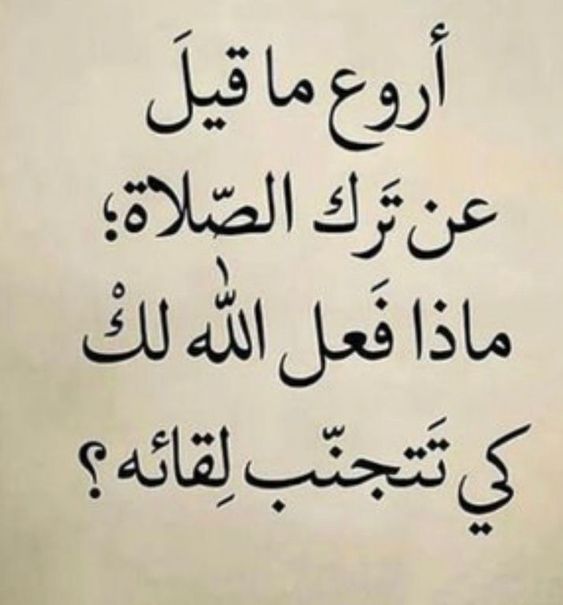 أروع ما قيلَ
عن تَرك الصّلاة؛
ماذا فَعل الله لكْ
كي تَتجنّب لِقائه؟